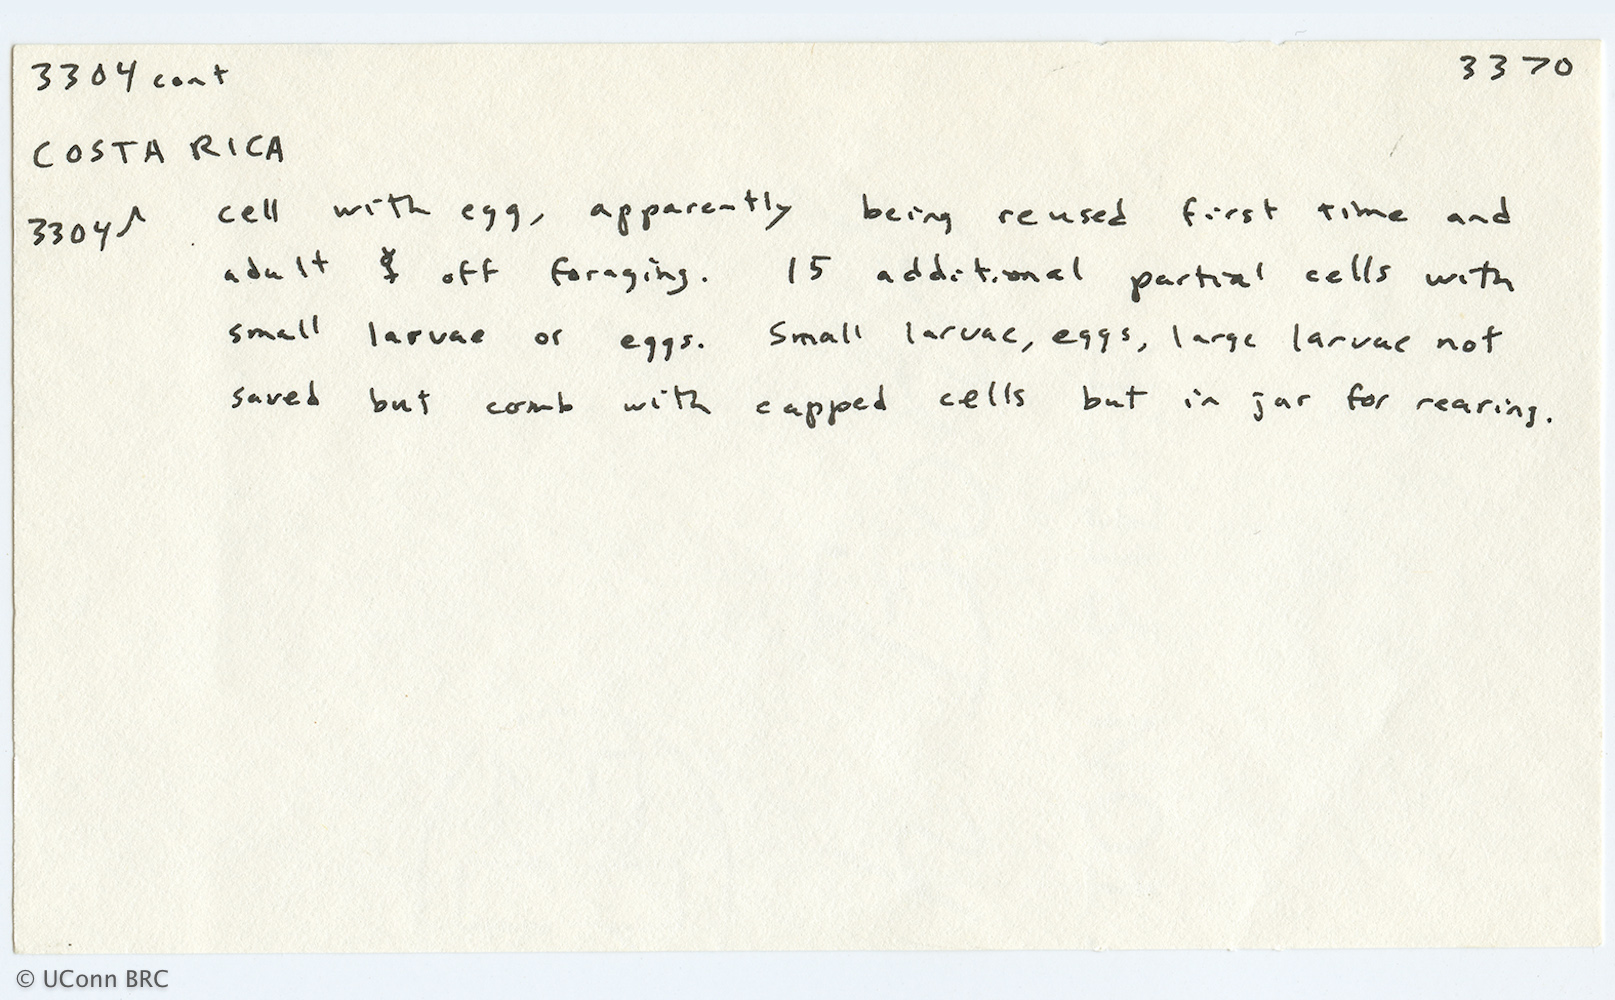 3304 cont
3370
COSTA RICA
3304 cell with egg, apparently being reused first time and
adult off foraging. 15 additional partial cells with
small larvae or eggs. Small larvae, eggs, large larvae not
saved but comb with capped cells but in jar for rearing.
© UConn BRC